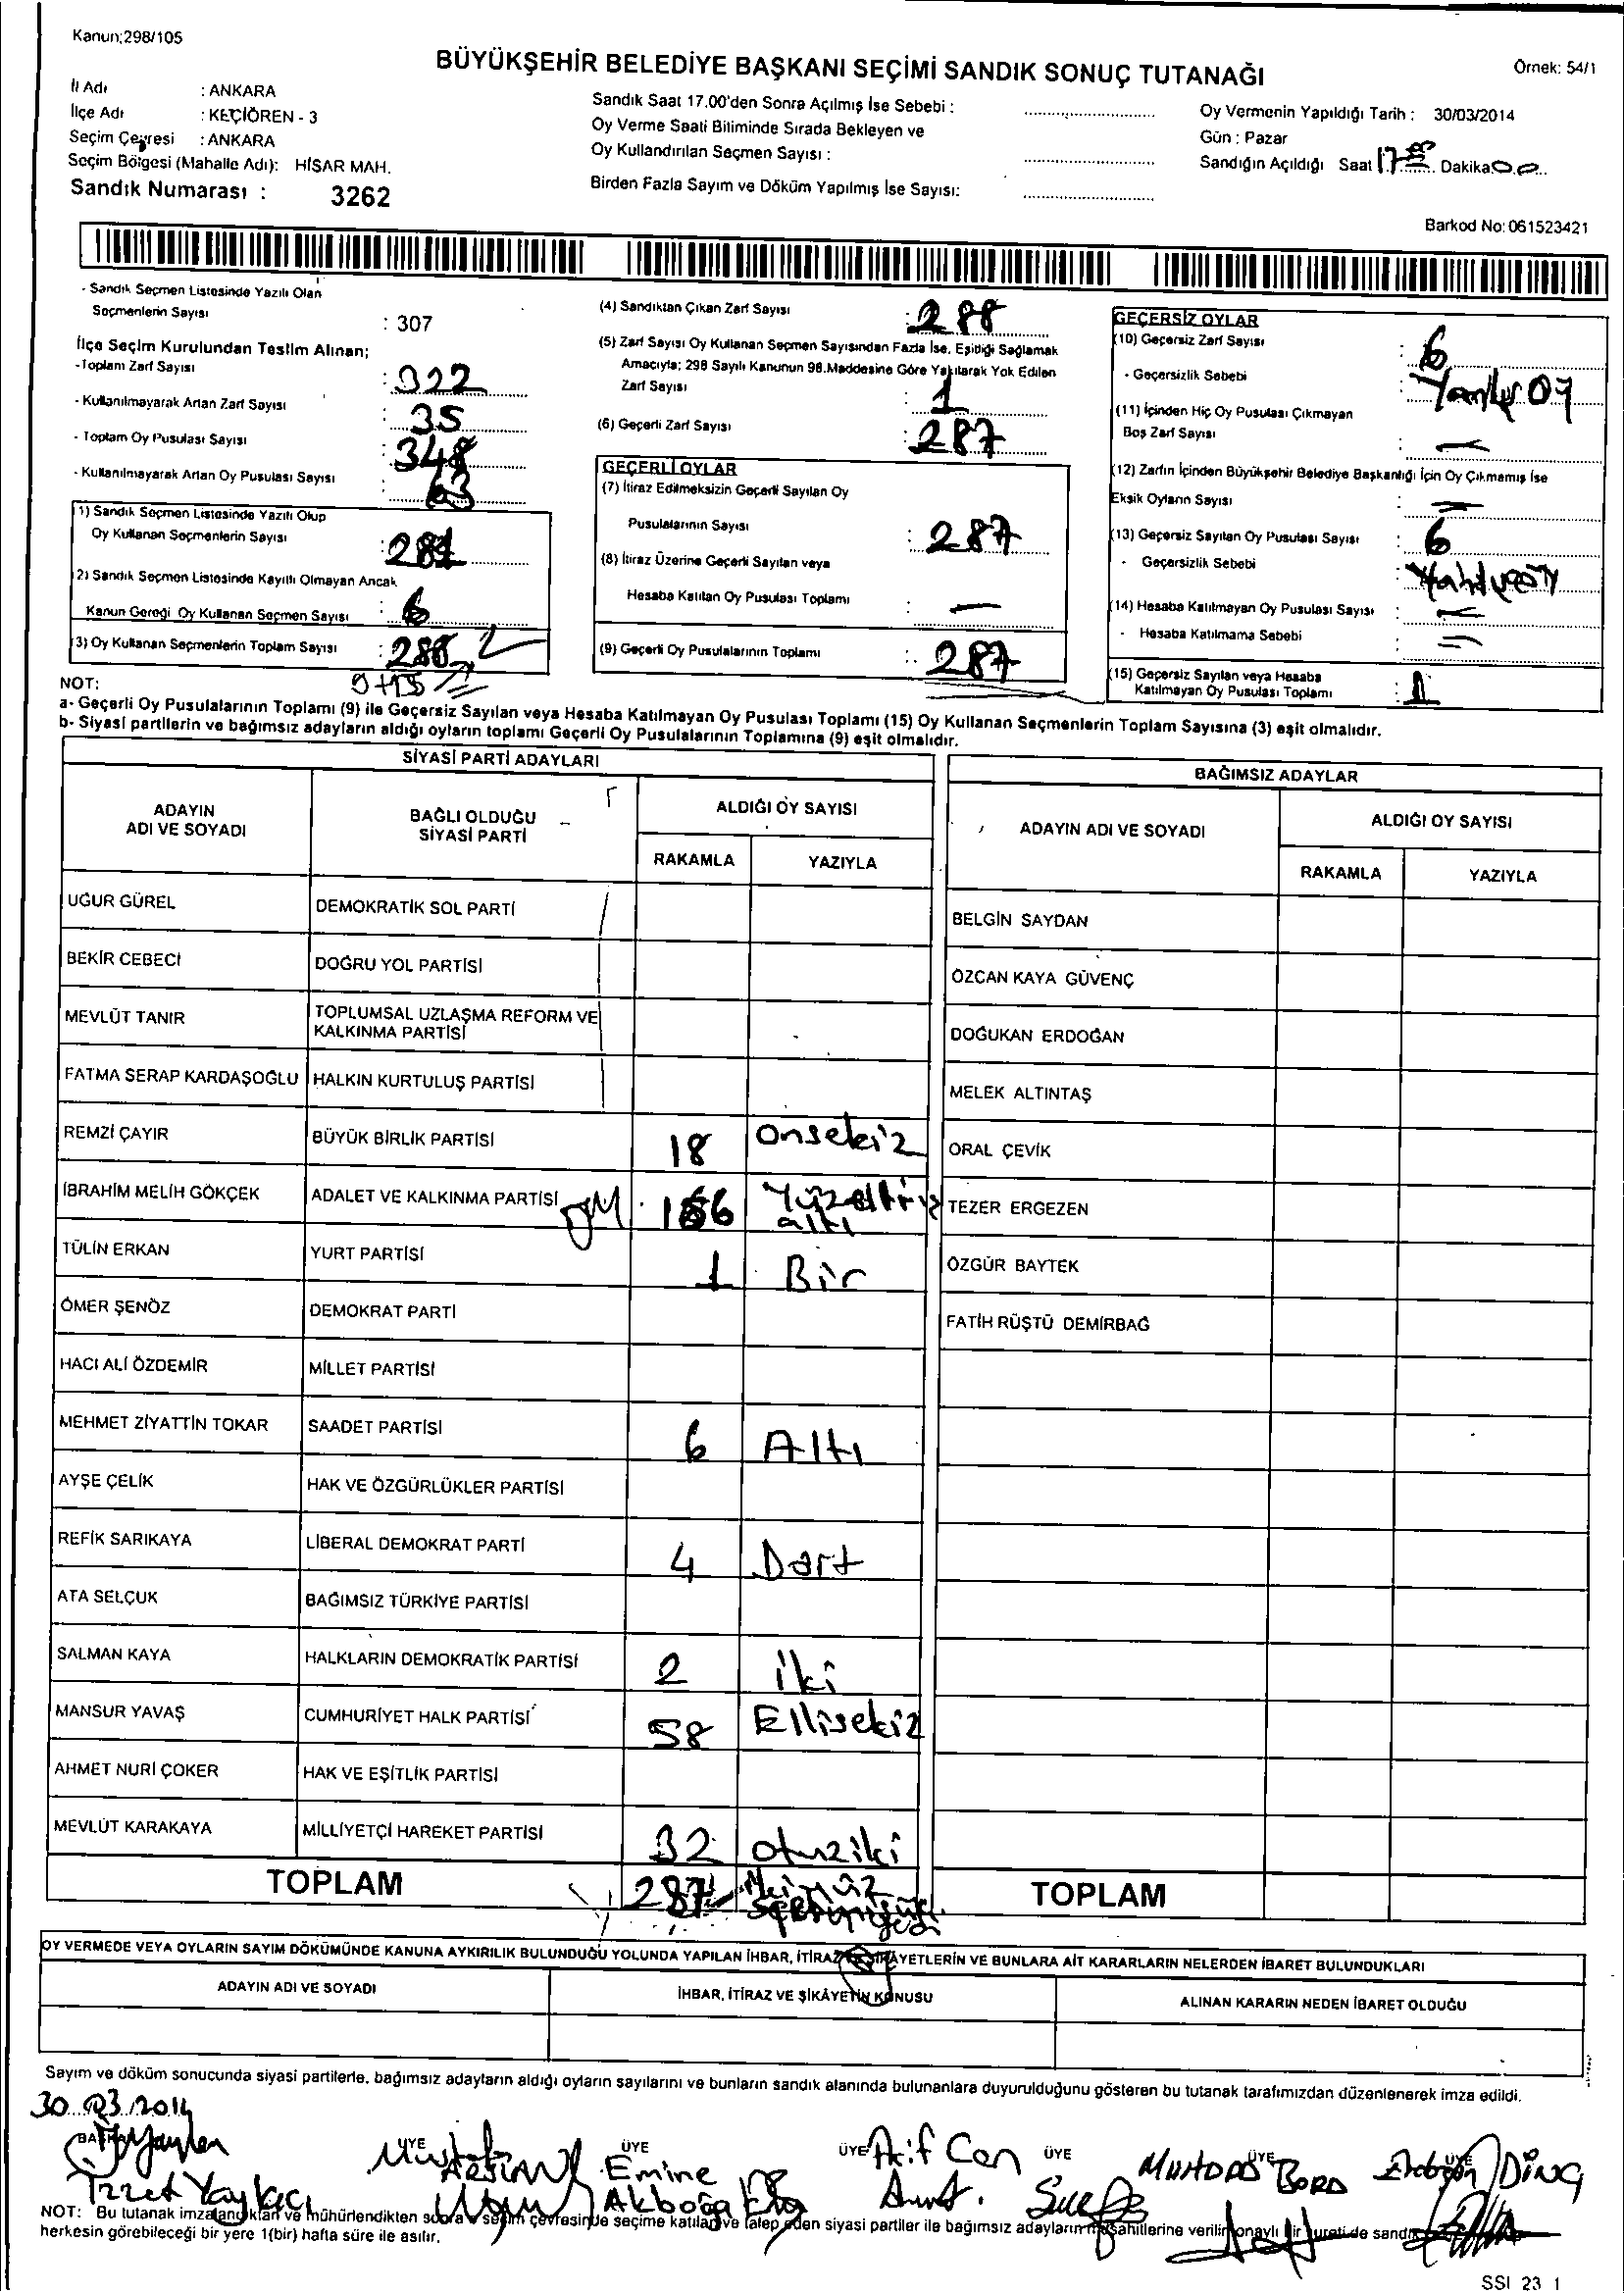 Kanun;298/105
BÜYÜKŞEHİR BELEDİYE BAŞKANI SEÇİMİ SANDIK SONUÇ TUTANAĞI
Örnek: 54/1
İl Adı : ANKARA
İlçe Adı : KEÇİÖREN - 3
Seçim Çevresi : ANKARA
Seçim Bölgesi (Mahalle Adı): HİSAR MAH.
Sandık Numarası : 3262
Sandık Saat 17.00'den Sonra Açılmış İse Sebebi :
Oy Verme Saati Bitiminde Sırada Bekleyen ve
Oy Kullandırılan Seçmen Sayısı :
Birden Fazla Sayım ve Döküm Yapılmış İse Sayısı:
Oy Vermenin Yapıldığı Tarih : 30/03/2014
Gün : Pazar
Sandığın Açıldığı Saat 17 Dakika 00
Barkod No: 061523421
- Sandık Seçmen Listesinde Yazılı Olan
Seçmenlerin Sayısı : 307
İlçe Seçim Kurulundan Teslim Alınan;
-Toplam Zarf Sayısı : 322
- Kullanılmayarak Artan Zarf Sayısı : 35
- Toplam Oy Pusulası Sayısı : 348
- Kullanılmayarak Artan Oy Pusulası Sayısı : 63
1) Sandık Seçmen Listesinde Yazılı Olup
Oy Kullanan Seçmenlerin Sayısı :
2) Sandık Seçmen Listesinde Kayıtlı Olmayan Ancak
Kanun Gereği Oy Kullanan Seçmen Sayısı : 6
(3) Oy Kullanan Seçmenlerin Toplam Sayısı : 288
(4) Sandıktan Çıkan Zarf Sayısı : 288
(5) Zarf Sayısı Oy Kullanan Seçmen Sayısından Fazla İse, Eşitliği Sağlamak
Amacıyla; 298 Sayılı Kanunun 98.Maddesine Göre Yakılarak Yok Edilen
Zarf Sayısı : 1
(6) Geçerli Zarf Sayısı : 287
GEÇERLİ OYLAR
(7) İtiraz Edilmeksizin Geçerli Sayılan Oy
Pusulalarının Sayısı : 287
(8) İtiraz Üzerine Geçerli Sayılan veya
Hesaba Katılan Oy Pusulası Toplamı : —
(9) Geçerli Oy Pusulalarının Toplamı : 287
GEÇERSİZ OYLAR
(10) Geçersiz Zarf Sayısı : 6
- Geçersizlik Sebebi : Yanlış Oy
(11) İçinden Hiç Oy Pusulası Çıkmayan
Boş Zarf Sayısı : —
(12) Zarfın İçinden Büyükşehir Belediye Başkanlığı İçin Oy Çıkmamış İse
Eksik Oyların Sayısı : —
(13) Geçersiz Sayılan Oy Pusulası Sayısı : 6
- Geçersizlik Sebebi :
(14) Hesaba Katılmayan Oy Pusulası Sayısı : —
- Hesaba Katılmama Sebebi : —
(15) Geçersiz Sayılan veya Hesaba
Katılmayan Oy Pusulası Toplamı : 1
NOT:
a- Geçerli Oy Pusulalarının Toplamı (9) ile Geçersiz Sayılan veya Hesaba Katılmayan Oy Pusulası Toplamı (15) Oy Kullanan Seçmenlerin Toplam Sayısına (3) eşit olmalıdır.
b- Siyasi partilerin ve bağımsız adayların aldığı oyların toplamı Geçerli Oy Pusulalarının Toplamına (9) eşit olmalıdır.
SİYASİ PARTİ ADAYLARI
ADAYIN ADI VE SOYADI
BAĞLI OLDUĞU SİYASİ PARTİ
ALDIĞI OY SAYISI
RAKAMLA YAZIYLA
UĞUR GÜREL DEMOKRATİK SOL PARTİ
BEKİR CEBECİ DOĞRU YOL PARTİSİ
MEVLÜT TANIR TOPLUMSAL UZLAŞMA REFORM VE KALKINMA PARTİSİ
FATMA SERAP KARDAŞOĞLU HALKIN KURTULUŞ PARTİSİ
REMZİ ÇAYIR BÜYÜK BİRLİK PARTİSİ 18 Onsekiz
İBRAHİM MELİH GÖKÇEK ADALET VE KALKINMA PARTİSİ 166 altı
TÜLİN ERKAN YURT PARTİSİ 1 Bir
ÖMER ŞENÖZ DEMOKRAT PARTİ
HACI ALİ ÖZDEMİR MİLLET PARTİSİ
MEHMET ZİYATTİN TOKAR SAADET PARTİSİ 6 Altı
AYŞE ÇELİK HAK VE ÖZGÜRLÜKLER PARTİSİ
REFİK SARIKAYA LİBERAL DEMOKRAT PARTİ 4 Dört
ATA SELÇUK BAĞIMSIZ TÜRKİYE PARTİSİ
SALMAN KAYA HALKLARIN DEMOKRATİK PARTİSİ 2 iki
MANSUR YAVAŞ CUMHURİYET HALK PARTİSİ 58 Ellisekiz
AHMET NURİ ÇOKER HAK VE EŞİTLİK PARTİSİ
MEVLÜT KARAKAYA MİLLİYETÇİ HAREKET PARTİSİ 32 otuziki
TOPLAM 287
BAĞIMSIZ ADAYLAR
ADAYIN ADI VE SOYADI
ALDIĞI OY SAYISI
RAKAMLA YAZIYLA
BELGİN SAYDAN
ÖZCAN KAYA GÜVENÇ
DOĞUKAN ERDOĞAN
MELEK ALTINTAŞ
ORAL ÇEVİK
TEZER ERGEZEN
ÖZGÜR BAYTEK
FATİH RÜŞTÜ DEMİRBAĞ
TOPLAM
OY VERMEDE VEYA OYLARIN SAYIM DÖKÜMÜNDE KANUNA AYKIRILIK BULUNDUĞU YOLUNDA YAPILAN İHBAR, İTİRAZ VE ŞİKAYETLERİN VE BUNLARA AİT KARARLARIN NELERDEN İBARET BULUNDUKLARI
ADAYIN ADI VE SOYADI
İHBAR, İTİRAZ VE ŞİKÂYETİN KONUSU
ALINAN KARARIN NEDEN İBARET OLDUĞU
Sayım ve döküm sonucunda siyasi partilerle, bağımsız adayların aldığı oyların sayılarını ve bunların sandık alanında bulunanlara duyurulduğunu gösteren bu tutanak tarafımızdan düzenlenerek imza edildi.
30.03.2014
BAŞKAN ÜYE ÜYE ÜYE ÜYE ÜYE ÜYE
İzzet Yaylacı
Emine Akboğa
Akif Can
NOT: Bu tutanak imzalandıktan ve mühürlendikten sonra seçim çevresinde seçime katılan ve talep eden siyasi partiler ile bağımsız adayların müşahitlerine verilir onaylı bir sureti de
herkesin görebileceği bir yere 1(bir) hafta süre ile asılır.
SSI 23 1